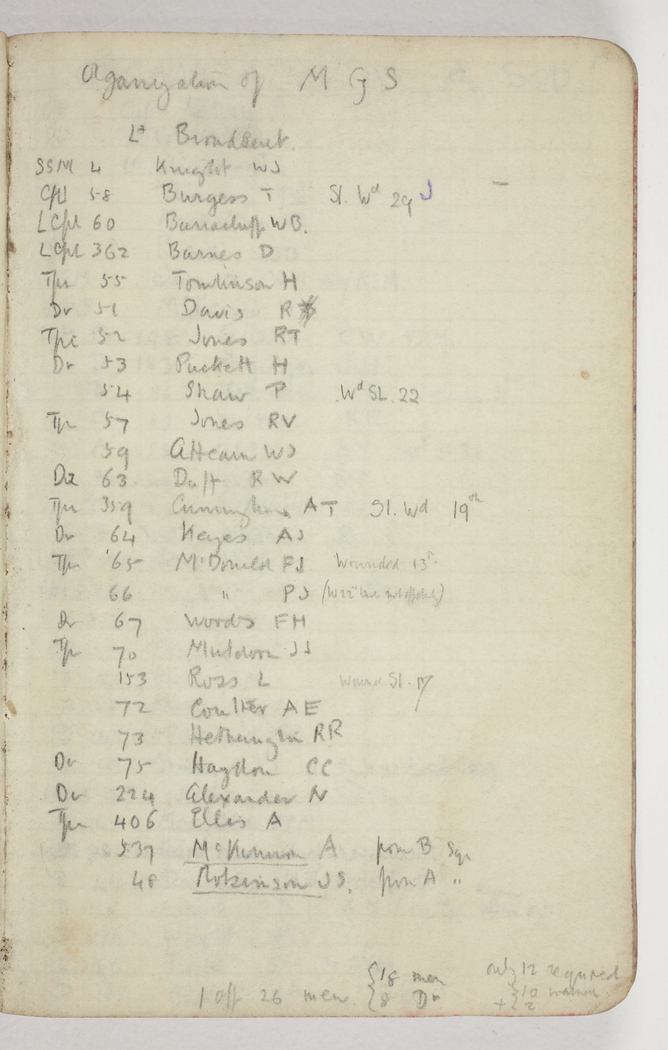 Organization of M G S
Lt Broadbent.
SSM 4 Knight WJ
Cpl 58 Burgess T Sl. Wd 29 J –
LCpl 60 WB.
LCpl 362 Barnes D
Tpr 55 Tomlinson H
Dr 51 Davis R
Tpr 52 Jones RT
Dr 53 Puckett H
54 Shaw P Wd SL. 22
Tpr 57 Jones RV
59 WJ
Dr 63 Duff R W
Tpr 359 Cunningham AT Sl. Wd 19th
Dr 64 Keyes AJ
Tpr 65 McDonald FJ Wounded 13th
66 " PJ
Dr 67 Woods FH
Tpr 70 Muldoon JJ
153 Ross L Wound Sl. 17
72 Coulter AE
73 Hetherington RR
Dr 75 Haydon CC
Dr 224 Alexander N
Tpr 406 Ellis A
537 McKinnon A from B Sqn
48 Robinson JS. from A "
1 off 26 men. { 18 men only 12 required
{ 8 Dr + { 10
2